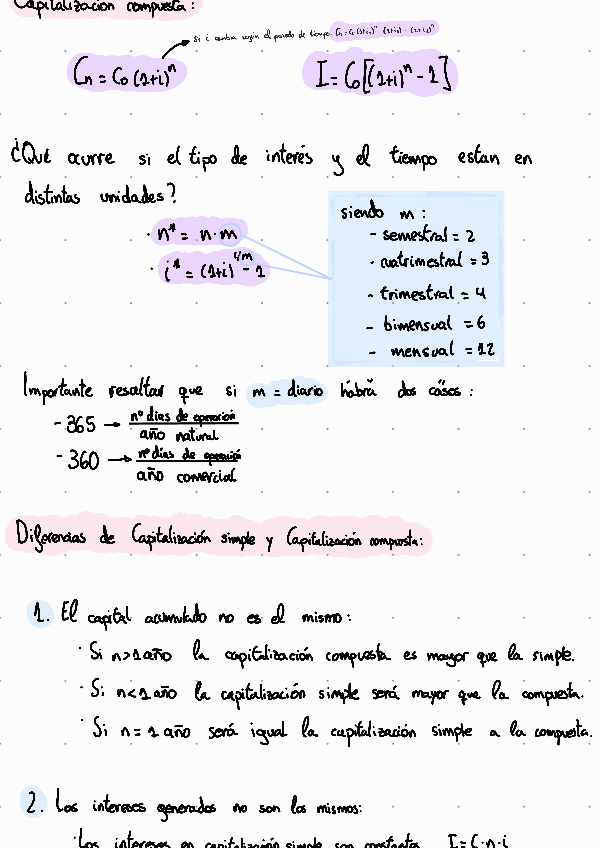 Capitalización compuesta:
Si i cambia según el periodo de tiempo: Cn = C0 (1+i)^n (1+i)^n · (1+i)^n
Cn = C0 (1+i)^n
I = C0[(1+i)^n - 1]
¿Qué ocurre si el tipo de interés y el tiempo estan en
distintas unidades?
· n* = n·m
· i* = (1+i)^1/m - 1
siendo m:
- semestral = 2
- cuatrimestral = 3
- trimestral = 4
- bimensual = 6
- mensual = 12
Importante resaltar que si m = diario habrá dos casos:
- 365 → nº dias de operación
año natural
- 360 → nº dias de operación
año comercial
Diferencias de Capitalización simple y Capitalización compuesta:
1. El capital acumulado no es el mismo:
· Si n>1 año la capitalización compuesta es mayor que la simple.
· Si n<1 año la capitalización simple será mayor que la compuesta.
· Si n = 1 año será igual la capitalización simple a la compuesta.
2. Los intereses generados no son los mismos:
· Los intereses en capitalización simple son constantes I = C·n·i